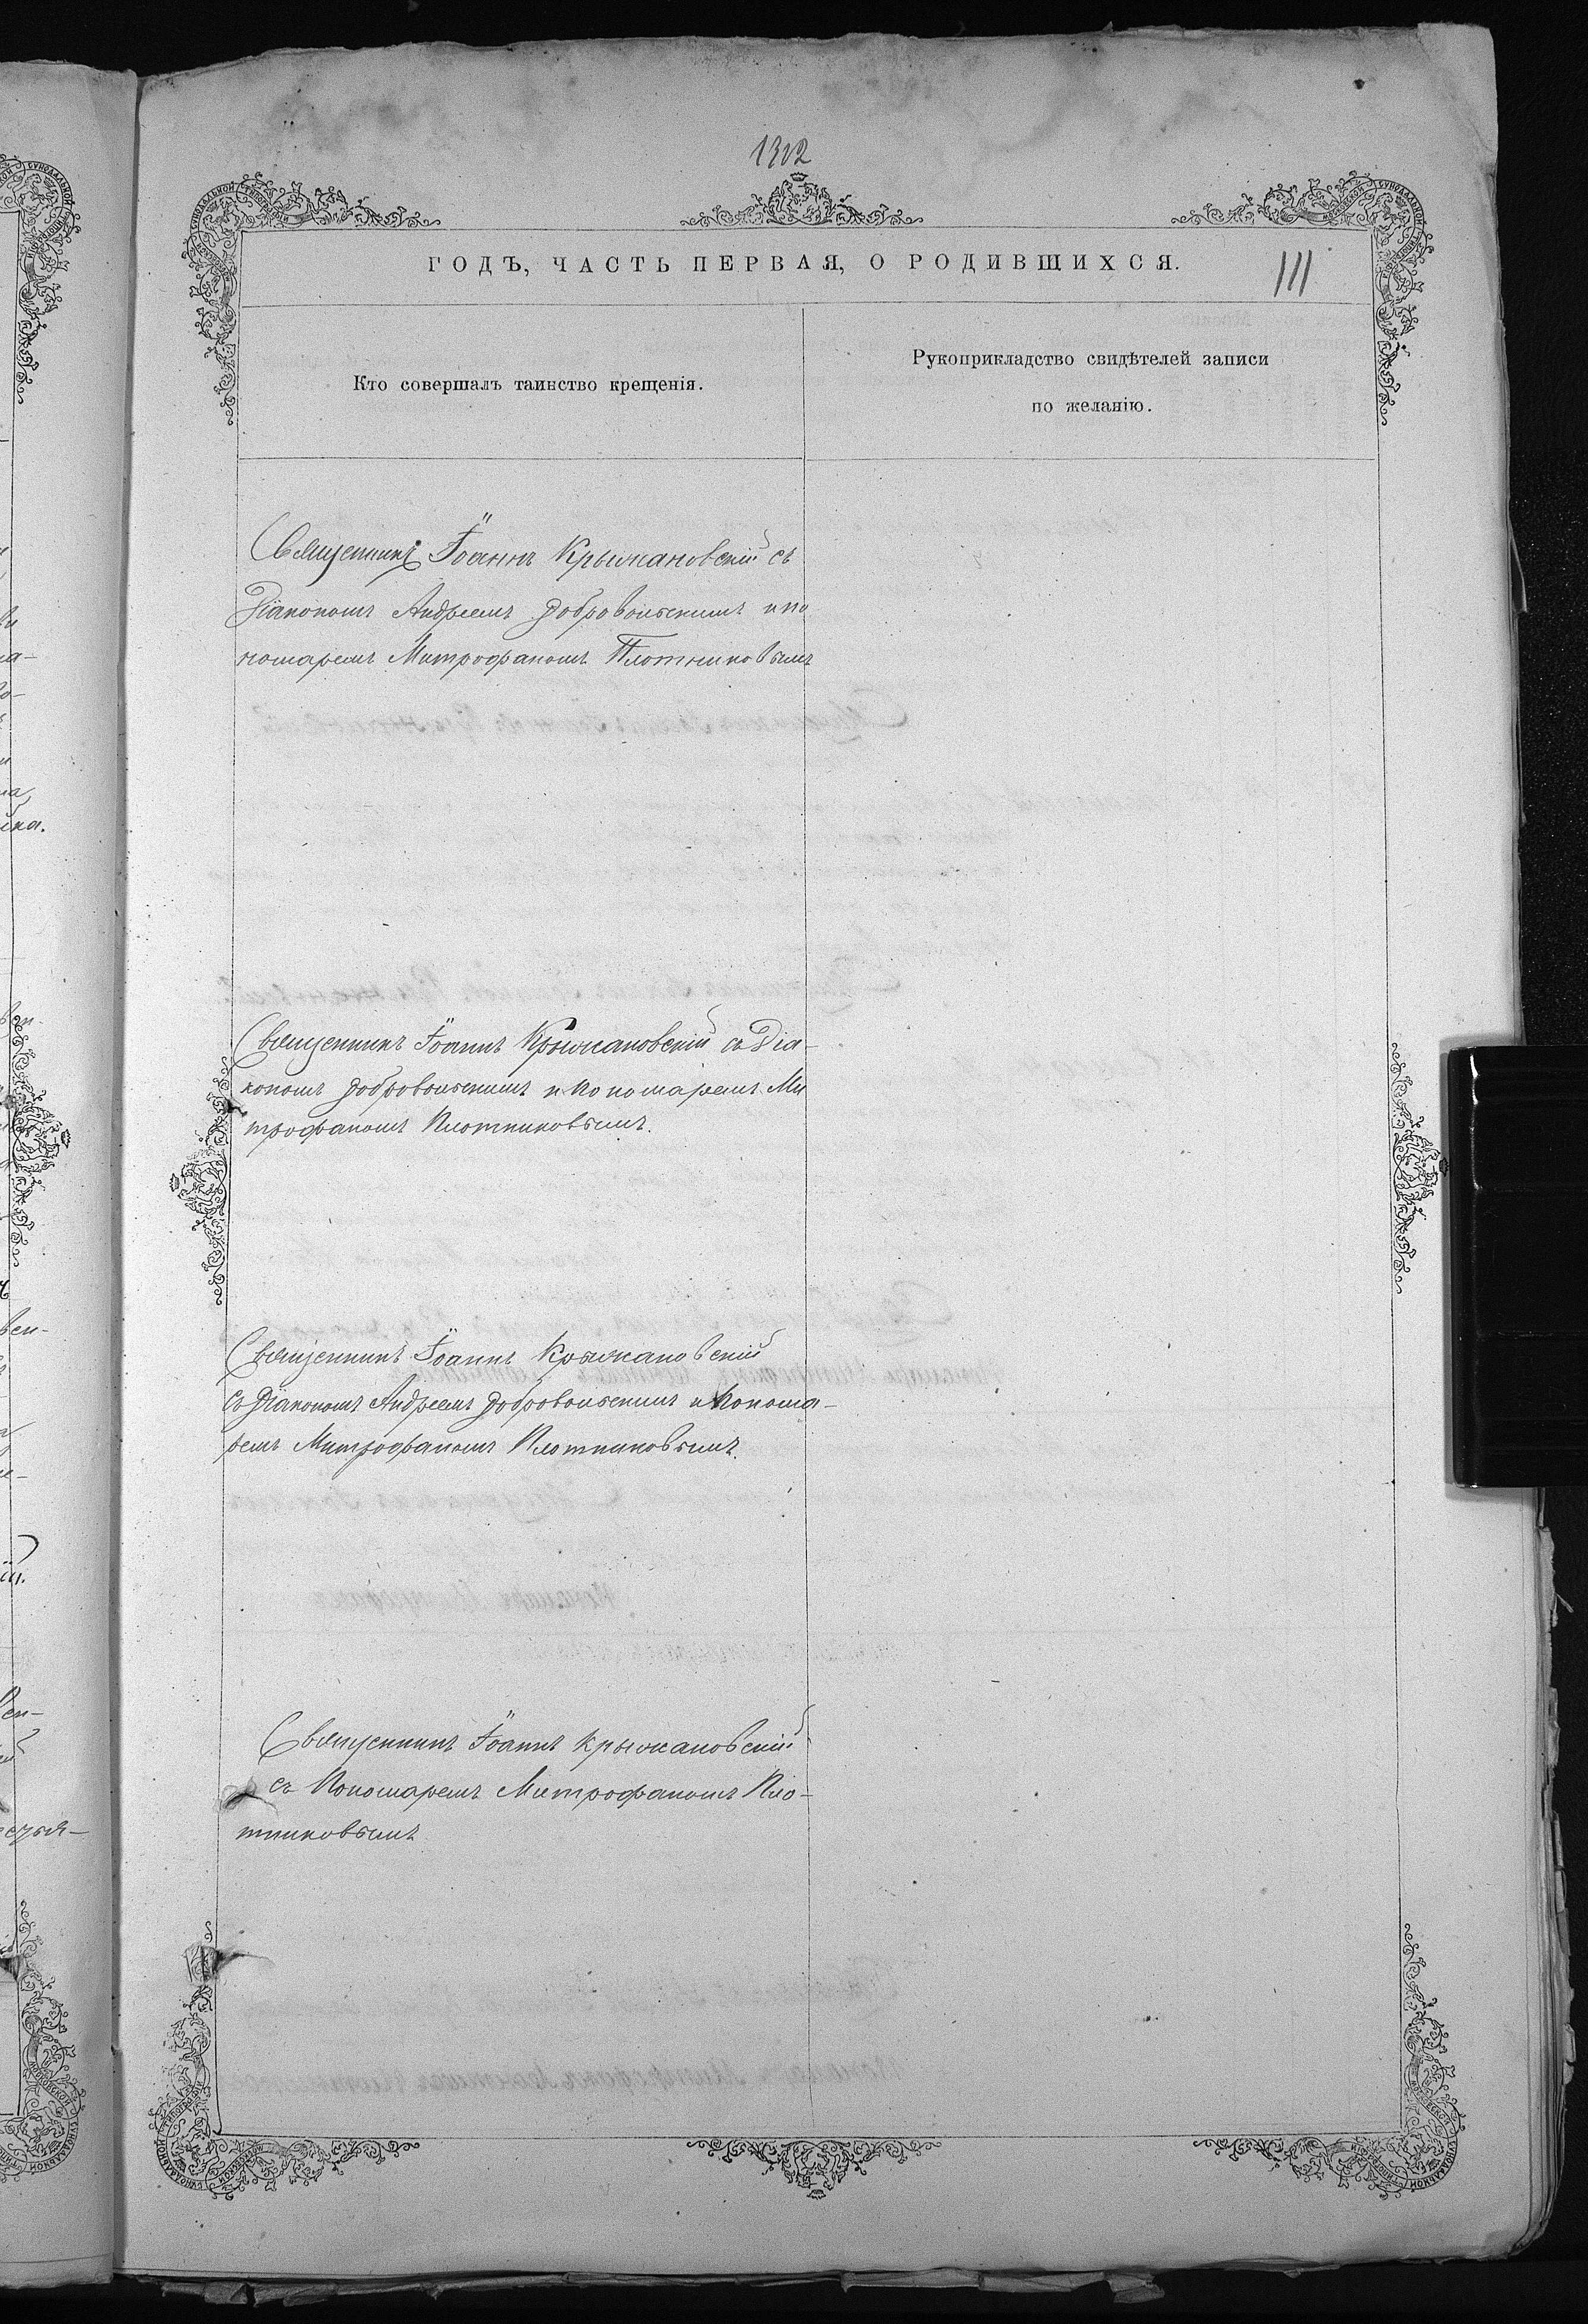 1312
ГОДЪ, ЧАСТЬ ПЕРВАЯ, О РОДИВШИХСЯ.
111
Кто совершалъ таинство крещенія.
Рукоприкладство свидѣтелей записи
по желанію.
Священникъ Іоаннъ Крыжановскій съ
Діакономъ Андреемъ Добровольскимъ и по
номаремъ Митрофаномъ Плотниковымъ
Священникъ Іоаннъ Крыжановскій съ Діа-
кономъ Добровольскимъ и Пономаремъ Ми
трофаномъ Плотниковымъ.
Священникъ Іоаннъ Крыжановскій
съ Діакономъ Андреемъ Добровольскимъ и Понома-
ремъ Митрофаномъ Плотниковымъ.
Священникъ Іоаннъ Крыжановскій
съ Пономаремъ Митрофаномъ Пло-
тниковымъ